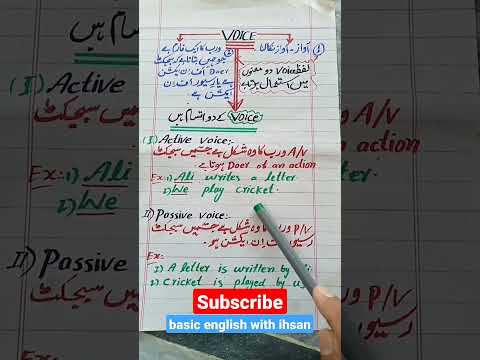 VOICE
(1) آواز - آواز نکالنا
(2) ورب کا ایک فارم ہے
جو ہمیں بتاتا ہے سبجیکٹ
Doer آف ان ایکشن
ہے یا رسیور آف ان
ایکشن ہے
لفظ Voice دو معنوں
میں استعمال ہوتا ہے
Voice کے دو اقسام ہیں
(I) Active voice:-
A/V ورب کا وہ شکل ہے جسمیں سبجیکٹ
Doer of an action ہوتا ہے
Ex:- 1) Ali writes a letter.
2) We play cricket.
II) Passive voice:-
P/V ورب کا وہ شکل ہے جسمیں سبجیکٹ
رسیور آف ان ایکشن ہو۔
Ex:-
1) A letter is written by Ali
2) Cricket is played by us
اقسام ہیں
(I) Active
میں سبجیکٹ
II) Passive
P/V و
رسیو
Subscribe
basic english with ihsan